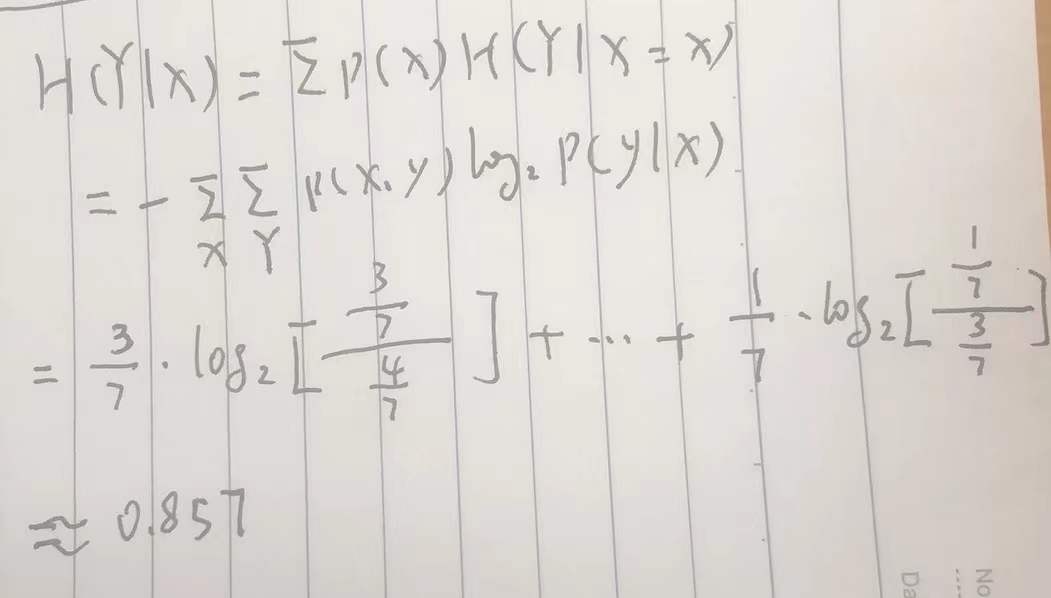 H(Y|X) = Σ P(X) H(Y|X=x)
= - Σ_X Σ_Y P(X,Y) log₂ P(Y|X)
= 3/7 · log₂ [(3/7)/(4/7)] + ... + 1/7 · log₂ [(1/7)/(3/7)]
≈ 0.857
No
Da